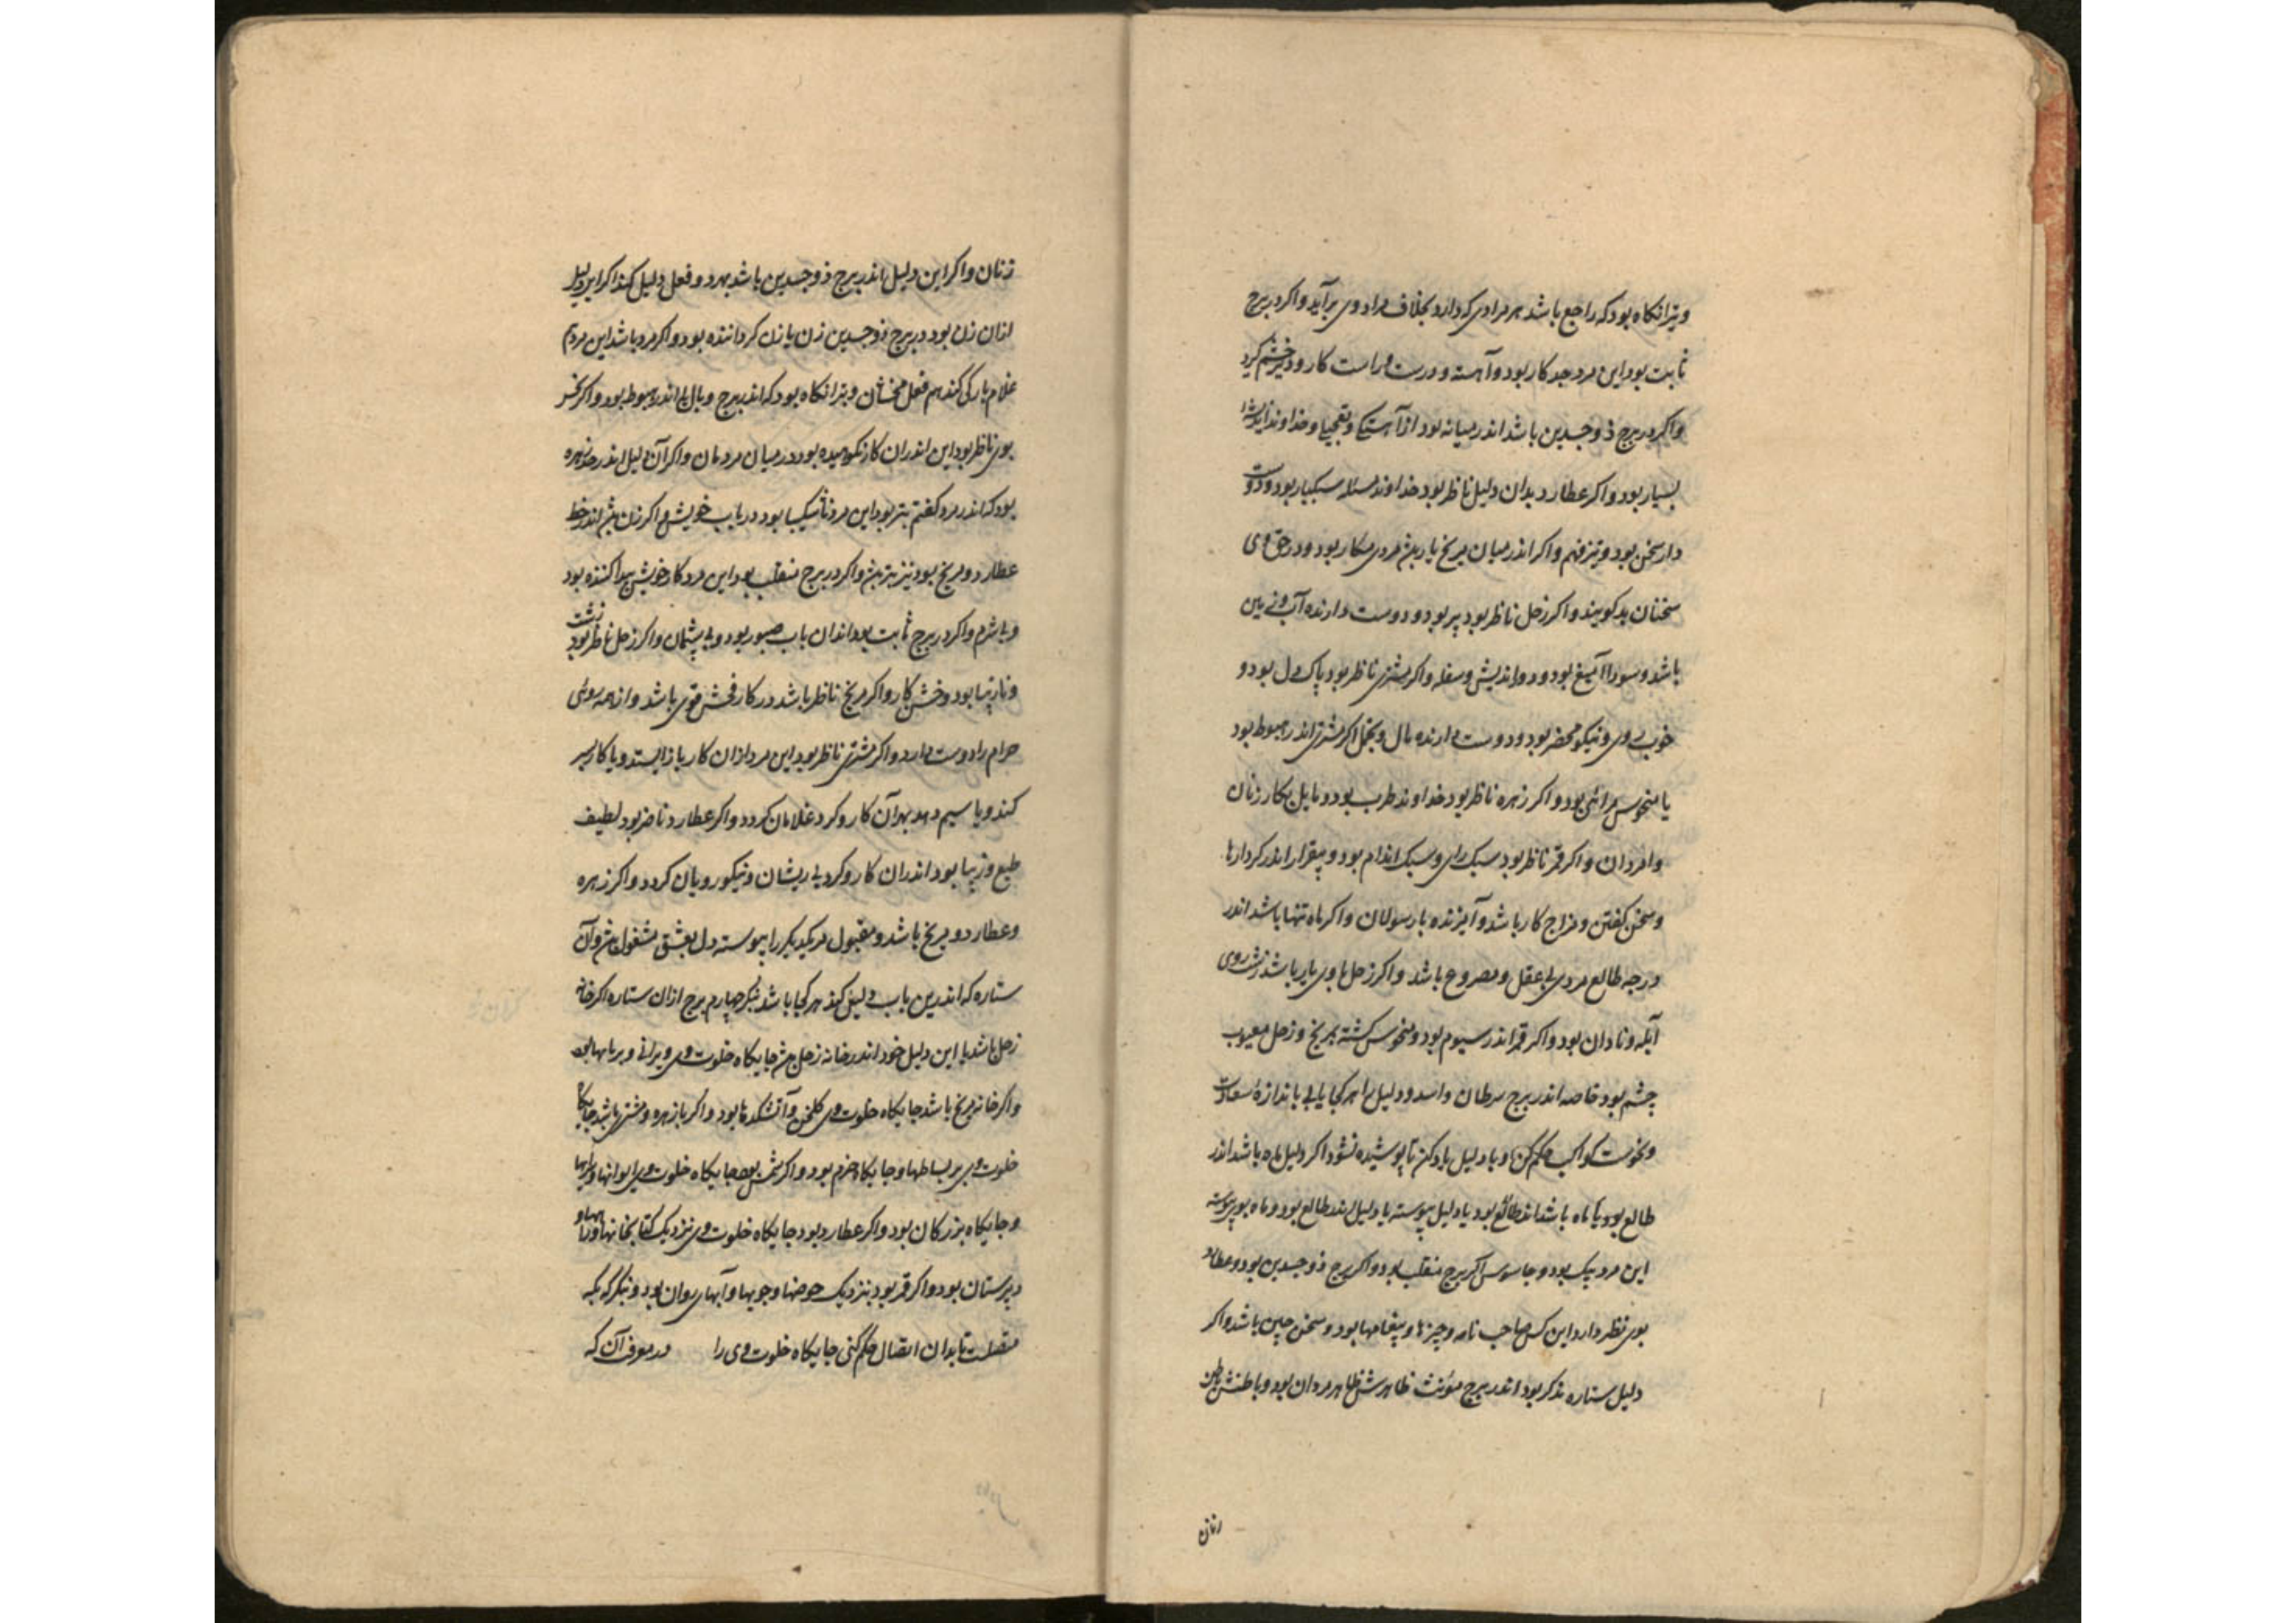 وبتر انکاه بود که راجع باشد هر مرادی که دارد بخلاف مراد وی برآید و اکر در برج
ثابت بود این مرد جد کار بود و آهسته و درست و راست کار و دیر خشم کیرد
واکر در برج ذوجسدین باشد اندر میانه بود از آهستکی و تعجیل و خداوند اندیشه
بسیار بود و اکر عطارد بدان دلیل ناظر بود خداوند مسئله سبکبار بود و دوست
دار سخن بود و تیزفهم و اکر اندر میان مریخ یار بود مردی مکار بود و در حق وی
سخنان بد کویند و اکر زحل ناظر بود پیر بود و دوست دارنده آب و زمین
باشد و سودا آمیغ بود و دور اندیش و سفله و اکر مشتری ناظر بود پاک دل بود و
خوب روی و نیکو محضر بود و دوست دارنده مال و بخیل اکر مشتری اندر هبوط بود
یا منحوس مرائی بود و اکر زهره ناظر بود خداوند طرب بود و مایل بکار زنان
وامردان و اکر قمر ناظر بود سبک رای و سبک اندام بود و بیقرار اندر کردارها
وسخن کفتن و مزاج کار باشد و آمیزنده با رسولان و اکر ماه تنها باشد اندر
درجه طالع مردی بی عقل و مصروع باشد و اکر زحل با وی یار باشد زشت روی
آبله و نادان بود و اکر قمر اندر سیوم بود و منحوس کشته بمریخ و زحل معیوب
چشم بود خاصه اندر برج سرطان و اسد و دلیل را هر کجا یابی باندازه سعادت
ونحوست کواکب حکم کن و با دلیل یاد کن تا پوشیده نشود اکر دلیل ماه باشد اندر
طالع بود یا ماه باشد اندر طالع بود یا دلیل پیوسته یا دلیل اندر طالع بود و ماه بوی پیوسته
این مرد پیک بود و جاسوس اکر برج منقلب بود و اکر برج ذوجسدین بود و عطارد
بوی نظر دارد این کس صاحب نامه و چیزها و پیغامها بود و سخن چین باشد و اکر
دلیل ستاره مذکر بود اندر برج مؤنث ظاهرش ظاهر مردان بود و باطنش باطن
زنان
زنان و اکر این دلیل اندر برج ذوجسدین باشد بهر دو فعل دلیل کند اکر این دلیل
ازان زن بود در برج ذوجسدین زن با زن کرداننده بود و اکر مرد باشد این مردم
غلام بارکی کند هم فعل مخنثان و بتر انکاه بود که اندر برج وبال یا اندر هبوط بود و اکر نحس
بوی ناظر بود این اندران کار نکوهیده بود در میان مردمان و اکر آن دلیل اندر حد زهره
بود که اندر مرد کفتم بتر بود این مرد ناشکیبا بود در باب خویش و اکر زن بود اندر خط
عطارد و مریخ بود نیز بتر بود و اکر در برج منقلب بود این مرد کار خویش پیدا کننده بود
وبی شرم و اکر در برج ثابت بود اندران باب صبور بود و بی پشیمان و اکر زحل ناظر بود زشت
ونازیبا بود و خشن کار و اکر مریخ ناظر باشد در کار فحش قوی باشد و از همه روئی
حرام را دوست دارد و اکر مشتری ناظر بود این مرد ازان کار باز ایستد و یا کار بسر
کند و یا سیم دهد بهر آن کار و کرد غلامان کردد و اکر عطارد ناظر بود لطیف
طبع و زیبا بود اندران کار و کرد بی ریشان و نیکو رویان کردد و اکر زهره
وعطارد و مریخ باشد و مقبول مر یکدیکر را پیوسته دل بعشق مشغول بود و آن
ستاره که اندرین باب دلیلی کند هر کجا باشد بنکر چهارم برج ازان ستاره اکر خانه
زحل باشد یا این دلیل خود اندر خانه زحل بود جایکاه خلوت وی ویرانی و بر بامها بود
واکر خانه مریخ باشد جایکاه خلوت وی کلخن و آتشکدها بود و اکر با زهره و مشتری باشد جایکاه
خلوت وی بر بساطها و جایکاه خرم بود و اکر شمس بود جایکاه خلوت وی ایوانها و سرایها
وجایکاه بزرکان بود و اکر عطارد بود جایکاه خلوت وی نزدیک کتابخانها و
دبیرستان بود و اکر قمر بود بنزدیک حوضها و جویها و آبهای روان بود و بنکر که بکه
متصلست تا بدان اتصال حکم کنی جایکاه خلوت وی را در معرف آن که